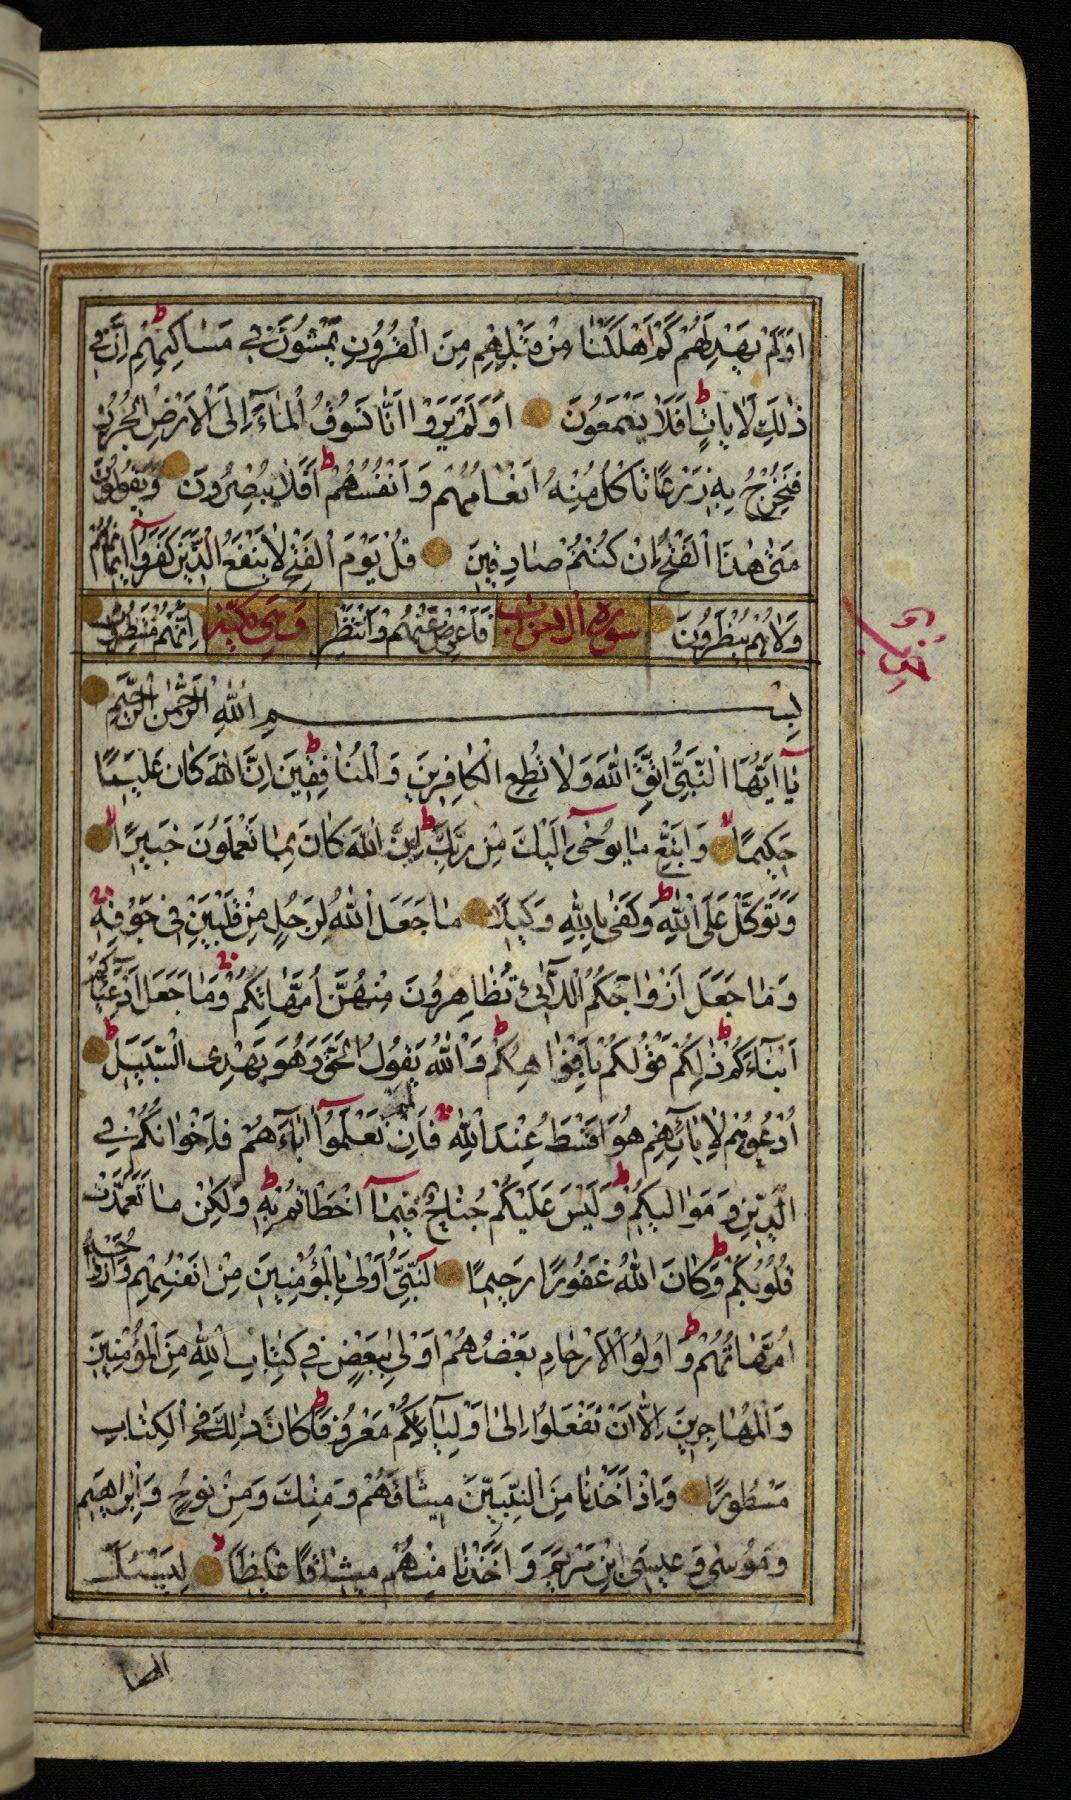 اَوَلَمْ يَهْدِ لَهُمْ كَمْ اَهْلَكْنَا مِنْ قَبْلِهِمْ مِنَ الْقُرُونِ يَمْشُونَ فِي مَسَاكِنِهِمْ ط اِنَّ فِي
ذٰلِكَ لَاٰيَاتٍ ط اَفَلَا يَسْمَعُونَ اَوَلَمْ يَرَوْا اَنَّا نَسُوقُ الْمَاءَ اِلَى الْاَرْضِ الْجُرُزِ
فَنُخْرِجُ بِهِ زَرْعًا تَاْكُلُ مِنْهُ اَنْعَامُهُمْ وَاَنْفُسُهُمْ ط اَفَلَا يُبْصِرُونَ وَيَقُولُونَ
مَتٰى هٰذَا الْفَتْحُ اِنْ كُنْتُمْ صَادِقِينَ قُلْ يَوْمَ الْفَتْحِ لَا يَنْفَعُ الَّذِينَ كَفَرُوا اِيمَانُهُمْ
وَلَا هُمْ يُنْظَرُونَ سورة الاحزاب فَاَعْرِضْ عَنْهُمْ وَانْتَظِرْ اِنَّهُمْ مُنْتَظِرُونَ
بِسْمِ اللّٰهِ الرَّحْمٰنِ الرَّحِيمِ
يَا اَيُّهَا النَّبِيُّ اتَّقِ اللّٰهَ وَلَا تُطِعِ الْكَافِرِينَ وَالْمُنَافِقِينَ ط اِنَّ اللّٰهَ كَانَ عَلِيمًا
حَكِيمًا لا وَاتَّبِعْ مَا يُوحٰى اِلَيْكَ مِنْ رَبِّكَ ط اِنَّ اللّٰهَ كَانَ بِمَا تَعْمَلُونَ خَبِيرًا لا
وَتَوَكَّلْ عَلَى اللّٰهِ ط وَكَفٰى بِاللّٰهِ وَكِيلًا مَا جَعَلَ اللّٰهُ لِرَجُلٍ مِنْ قَلْبَيْنِ فِي جَوْفِهِ
وَمَا جَعَلَ اَزْوَاجَكُمُ اللَّائِي تُظَاهِرُونَ مِنْهُنَّ اُمَّهَاتِكُمْ وَمَا جَعَلَ اَدْعِيَاءَكُمْ
اَبْنَاءَكُمْ ط ذٰلِكُمْ قَوْلُكُمْ بِاَفْوَاهِكُمْ ط وَاللّٰهُ يَقُولُ الْحَقَّ وَهُوَ يَهْدِي السَّبِيلَ ط
اُدْعُوهُمْ لِاٰبَائِهِمْ هُوَ اَقْسَطُ عِنْدَ اللّٰهِ فَاِنْ لَمْ تَعْلَمُوا اٰبَاءَهُمْ فَاِخْوَانُكُمْ فِي
الدِّينِ وَمَوَالِيكُمْ ط وَلَيْسَ عَلَيْكُمْ جُنَاحٌ فِيمَا اَخْطَاْتُمْ بِهِ ط وَلٰكِنْ مَا تَعَمَّدَتْ
قُلُوبُكُمْ ط وَكَانَ اللّٰهُ غَفُورًا رَحِيمًا اَلنَّبِيُّ اَوْلٰى بِالْمُؤْمِنِينَ مِنْ اَنْفُسِهِمْ وَاَزْوَاجُهُ
اُمَّهَاتُهُمْ ط وَاُولُوا الْاَرْحَامِ بَعْضُهُمْ اَوْلٰى بِبَعْضٍ فِي كِتَابِ اللّٰهِ مِنَ الْمُؤْمِنِينَ
وَالْمُهَاجِرِينَ اِلَّا اَنْ تَفْعَلُوا اِلٰى اَوْلِيَائِكُمْ مَعْرُوفًا ط كَانَ ذٰلِكَ فِي الْكِتَابِ
مَسْطُورًا وَاِذْ اَخَذْنَا مِنَ النَّبِيِّينَ مِيثَاقَهُمْ وَمِنْكَ وَمِنْ نُوحٍ وَاِبْرَاهِيمَ
وَمُوسٰى وَعِيسَى ابْنِ مَرْيَمَ وَاَخَذْنَا مِنْهُمْ مِيثَاقًا غَلِيظًا لِيَسْئَلَ